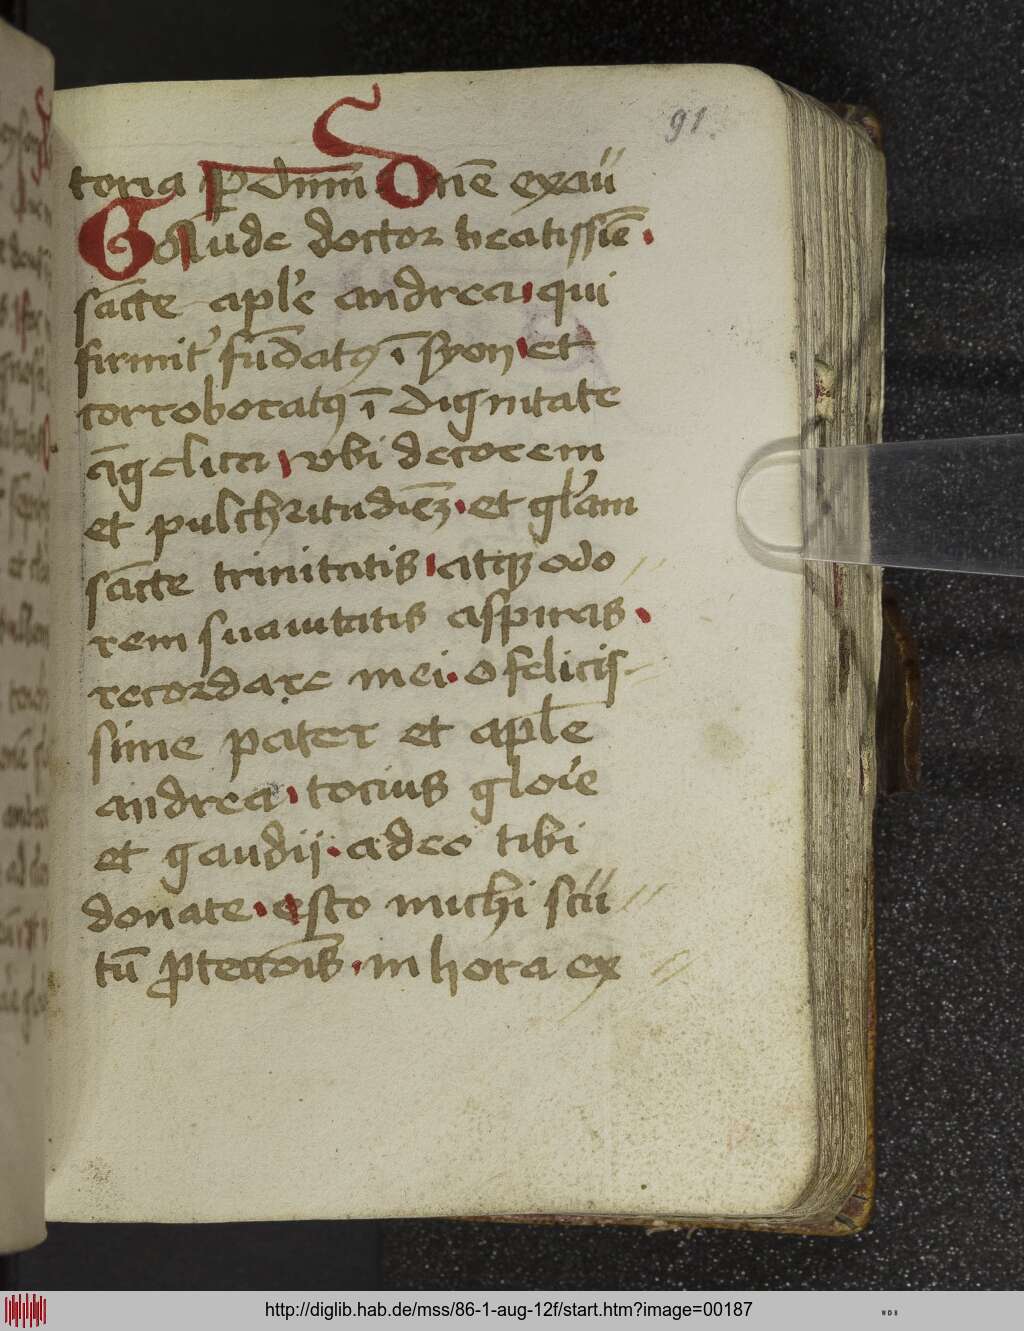 91.
toria P dnm Dnē exau
Gaude doctor beatissīe.
sācte apl'e andrea qui
firmit' fūdatꝰ ī syon et
corroboratꝰ ī dignitate
āgelica vbi decorem
et pulchritudīeꝫ. et gl'am
sācte trinitatis atqꝫ odo
rem suauitatis aspiras.
recordare mei. O felicis-
sime pater et aplē
andrea. tocius gloīe
et gaudij. a deo tibi
donate. esto michi scu
tū ꝓtectōis. in hora ex
http://diglib.hab.de/mss/86-1-aug-12f/start.htm?image=00187